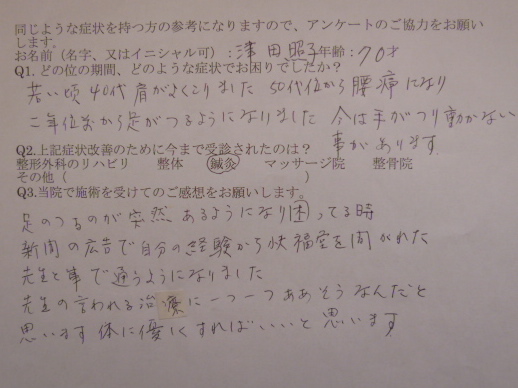 同じような症状を持つ方の参考になりますので、アンケートのご協力をお願い
します。
お名前（名字、又はイニシャル可）：津田照子年齢：70才
Q1. どの位の期間、どのような症状でお困りでしたか？
若い頃 40代 肩がよくこりました 50代位から腰痛になり
二年位前から足がつるようになりました 今は手がつり動かない
事があります
Q2.上記症状改善のために今まで受診されたのは？
整形外科のリハビリ 整体 鍼灸 マッサージ院 整骨院
その他（ ）
Q3.当院で施術を受けてのご感想をお願いします。
足のつるのが突然 あるようになり困ってる時
新聞の広告で自分の経験から快福堂を開がれた
先生と事で通うようになりました
先生の言われる治療に一つ一つああそうなんだと
思います 体に優しくすればいいいと思います